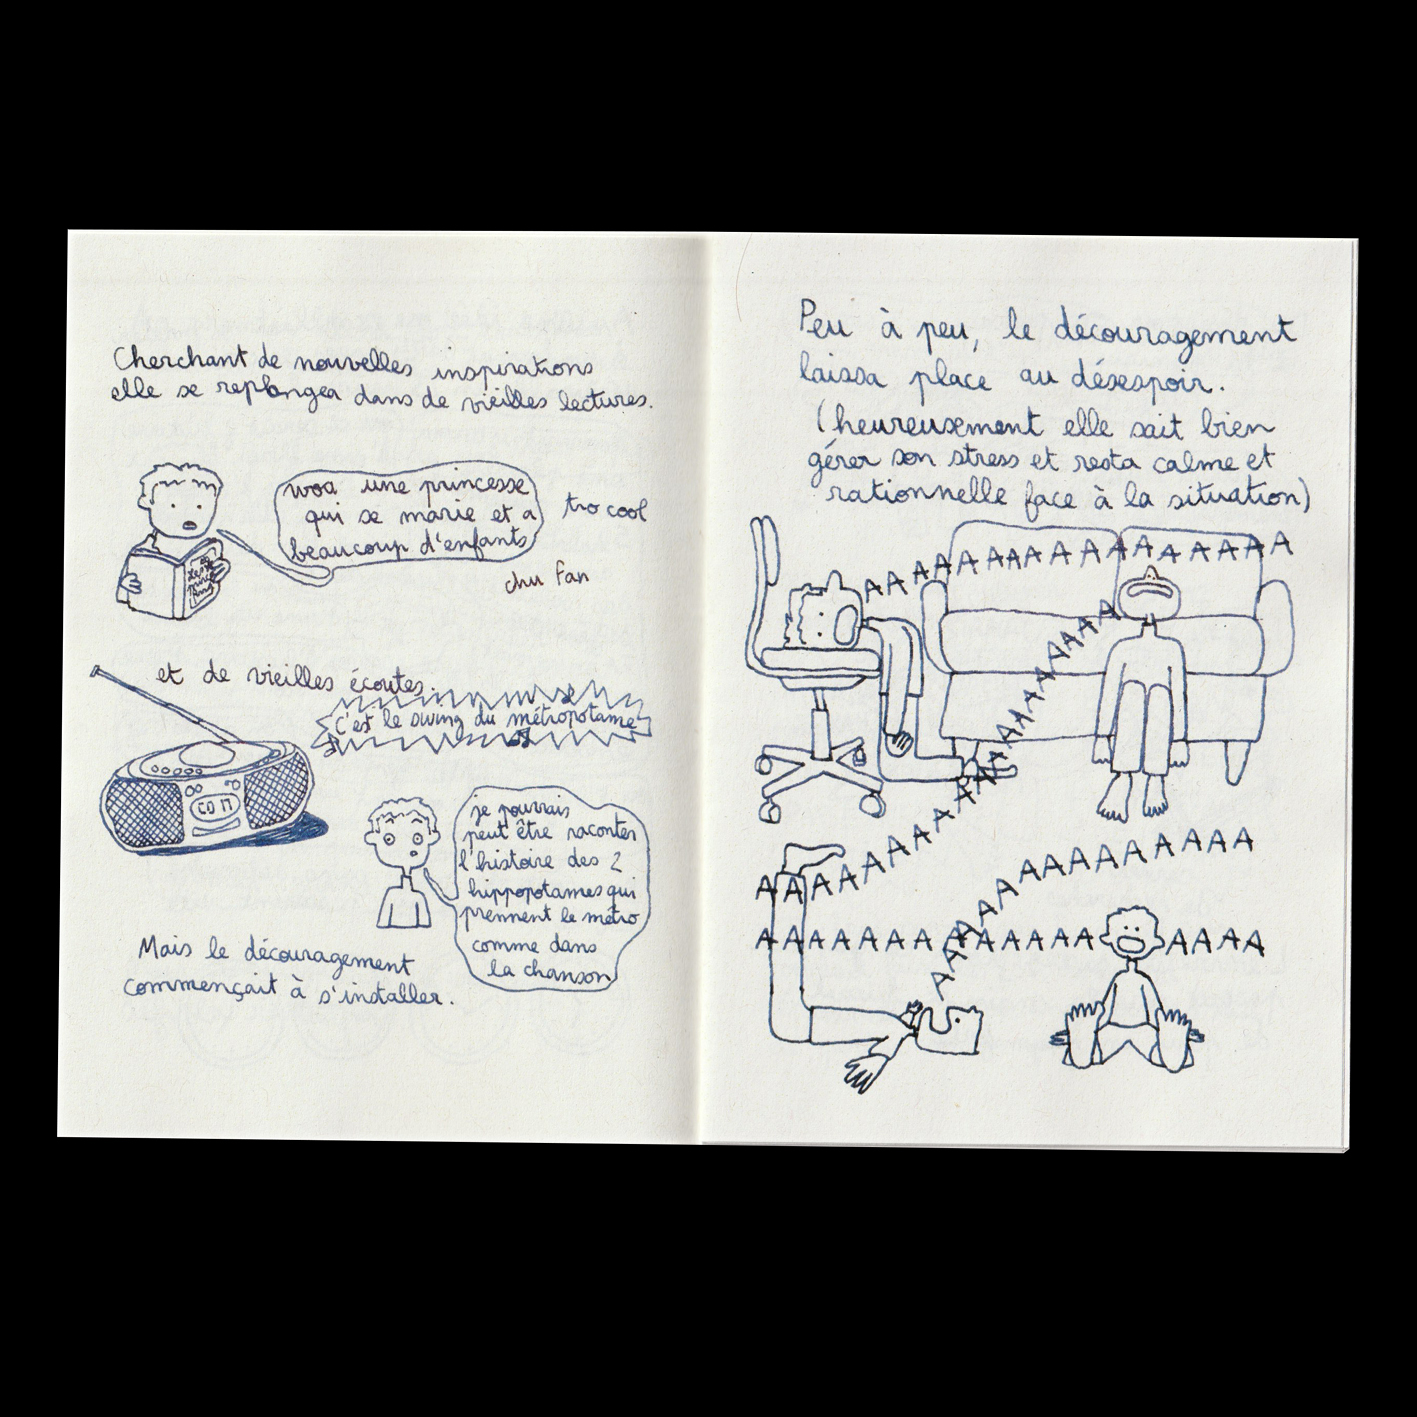 Cherchant de nouvelles inspirations
elle se replongea dans de vieilles lectures.
woa une princesse
qui se marie et a
beaucoup d'enfants
tro cool
chu fan
et de vieilles écoutes.
c'est le swing du métropotame
je pourrais
peut être raconter
l'histoire des 2
hippopotames qui
prennent le métro
comme dans
la chanson
Mais le découragement
commençait à s'installer.
Peu à peu, le découragement
laissa place au désespoir.
(heureusement elle sait bien
gérer son stress et resta calme et
rationnelle face à la situation)
AAAAAAAAAAAAAAAAAA
AAAAAAAAAAAAAAAAAAAAAA
AAAAAAAAAAAAAAAA
AAAAAAAAAAAAAAAAAA